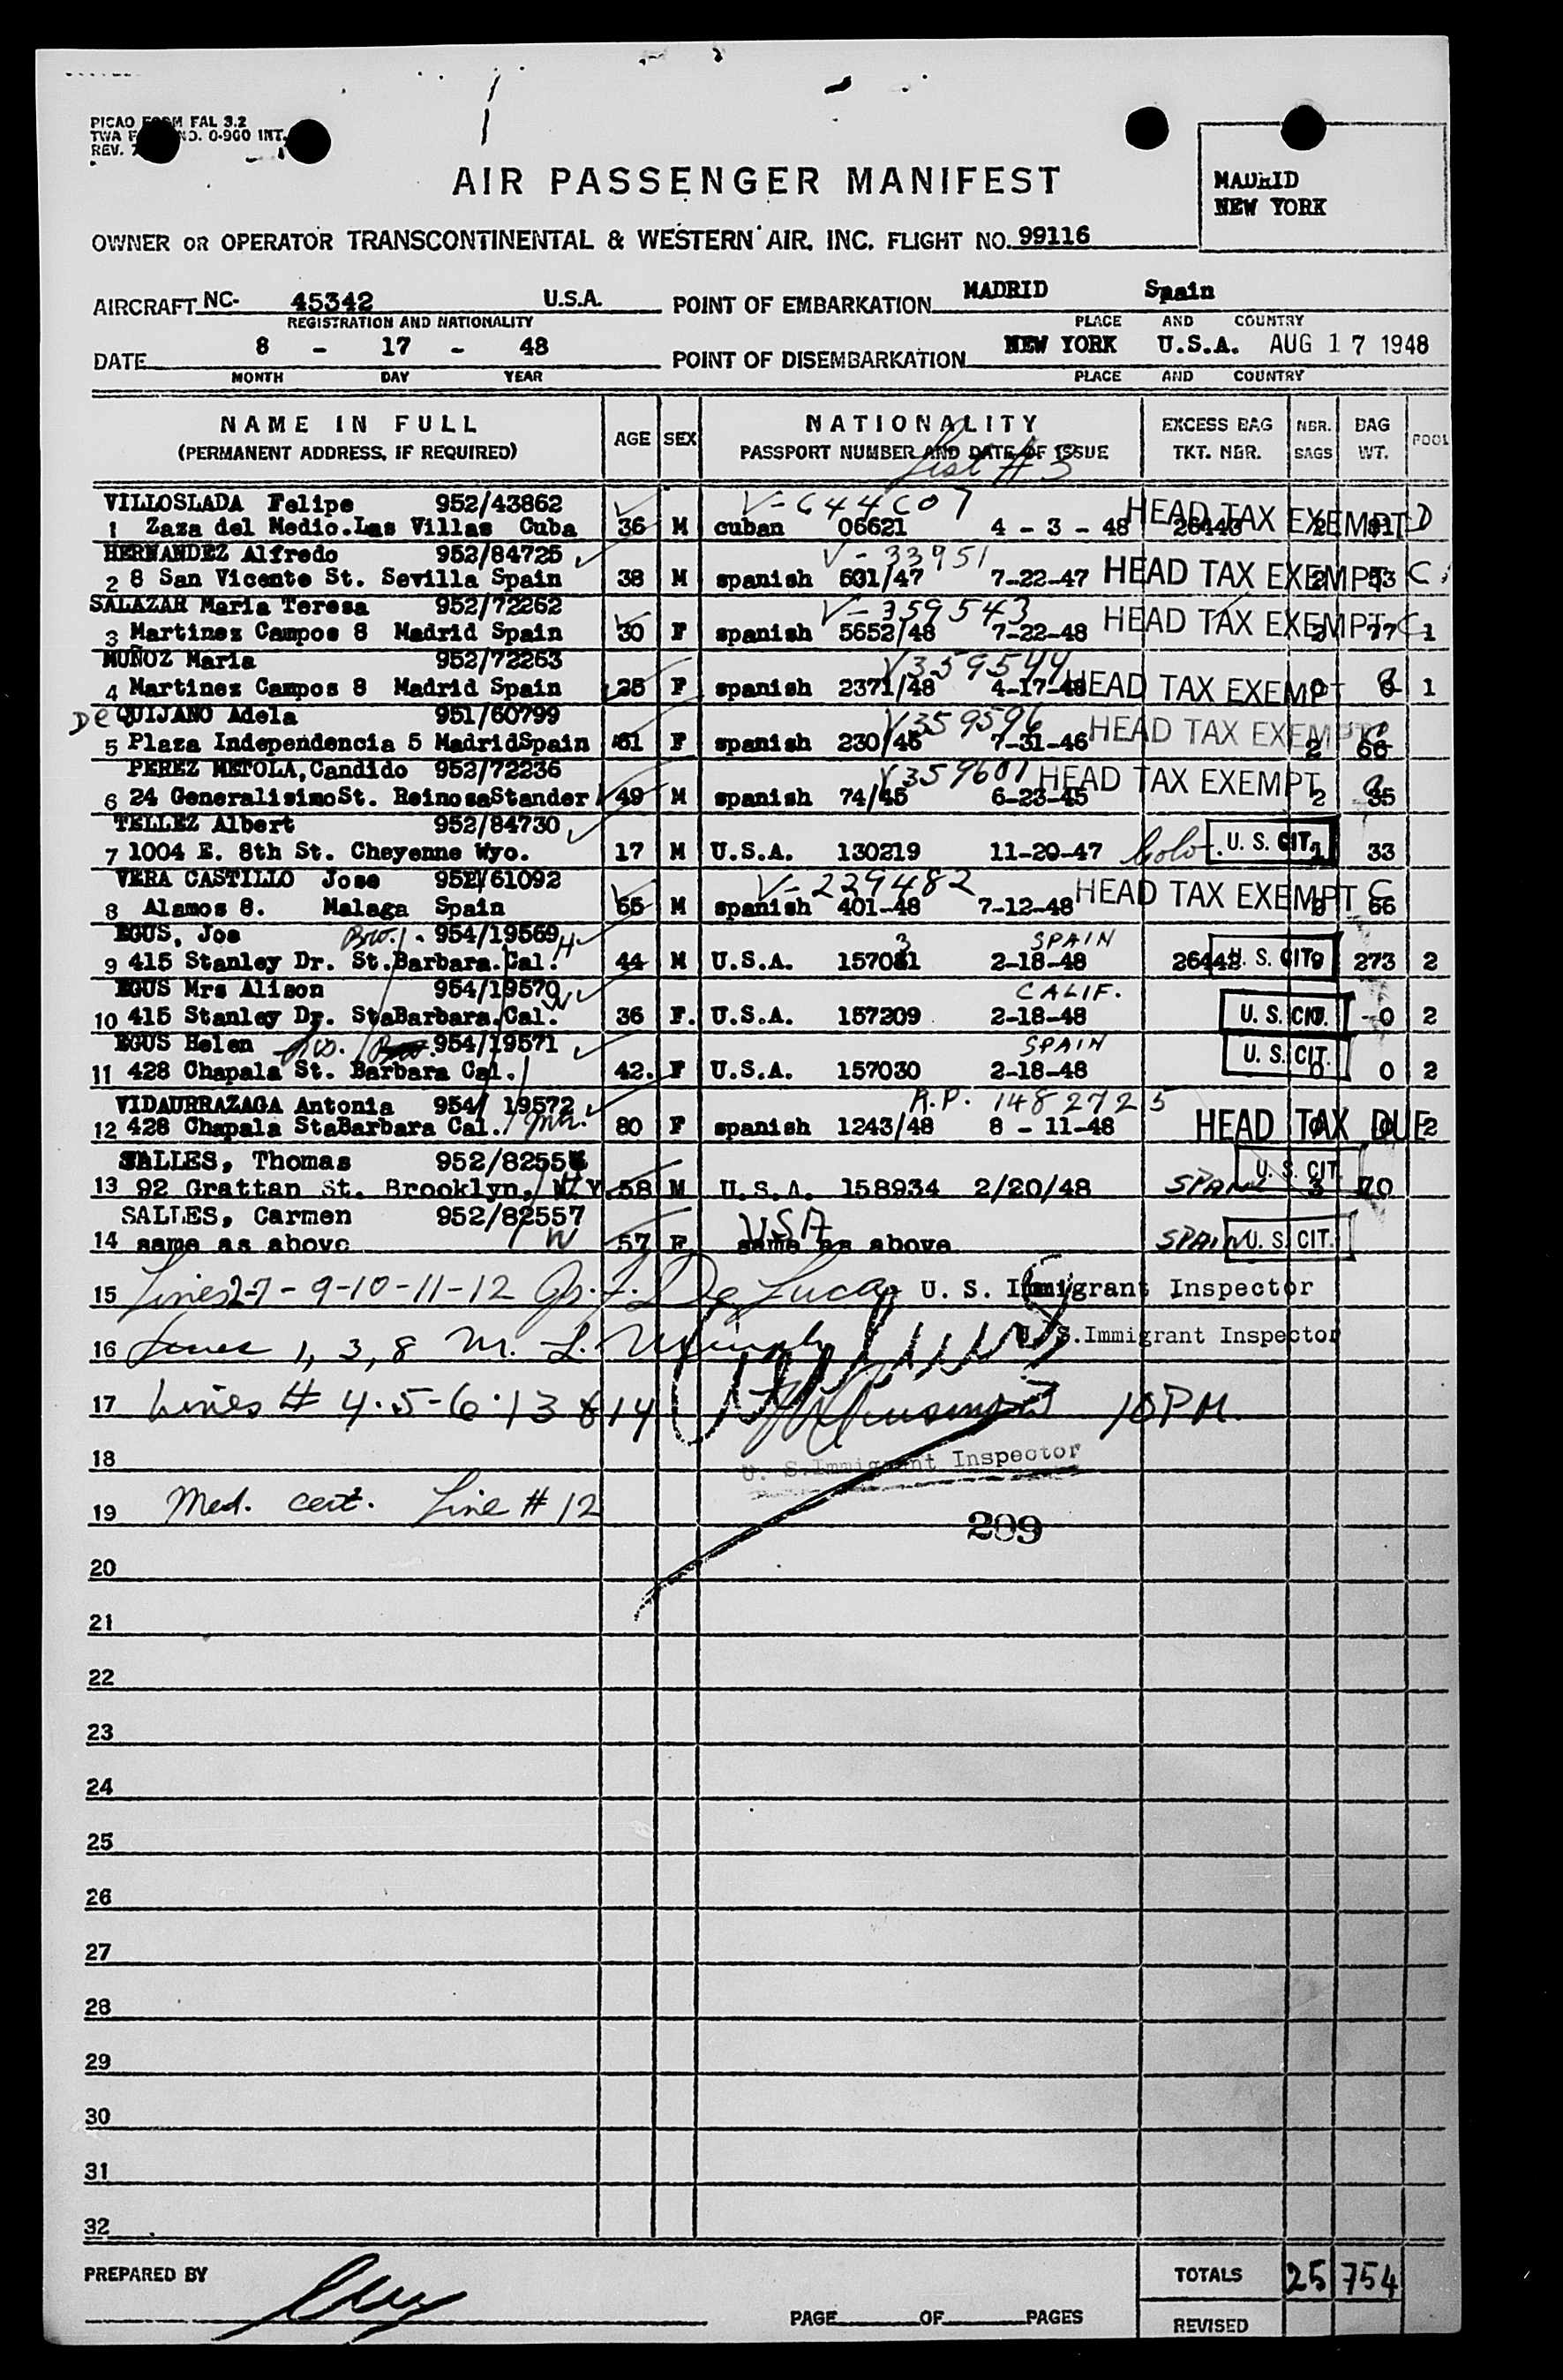 PICAO FORM FAL 3.2
TWA NO. 0-960 INT.
REV.
MADRID
NEW YORK
AIR PASSENGER MANIFEST
OWNER OR OPERATOR TRANSCONTINENTAL & WESTERN AIR, INC. FLIGHT NO. 99116
AIRCRAFT NC- 45342 U.S.A. POINT OF EMBARKATION MADRID Spain
REGISTRATION AND NATIONALITY PLACE AND COUNTRY
DATE 8 - 17 - 48 POINT OF DISEMBARKATION NEW YORK U.S.A. AUG 17 1948
MONTH DAY YEAR PLACE AND COUNTRY
NAME IN FULL AGE SEX NATIONALITY EXCESS BAG NBR. BAG POOL
(PERMANENT ADDRESS, IF REQUIRED) PASSPORT NUMBER AND DATE OF ISSUE TKT. NBR. BAGS WT.
List # 3
VILLOSLADA Felipe 952/43862 V-644607
1 Zaza del Medio.Las Villas Cuba 36 M cuban 06621 4 - 3 - 48 26443 HEAD TAX EXEMPT 2 D
HERNANDEZ Alfredo 952/84725 V-33951
2 8 San Vicente St. Sevilla Spain 38 M spanish 601/47 7-22-47 HEAD TAX EXEMPT 2 53 C
SALAZAR Maria Teresa 952/72262 V-359543
3 Martinez Campos 8 Madrid Spain 30 F spanish 5652/48 7-22-48 HEAD TAX EXEMPT 2 77 C 1
MUÑOZ Maria 952/72263 V359544
4 Martinez Campos 8 Madrid Spain 25 F spanish 2371/48 4-17-48 HEAD TAX EXEMPT 0 1
De QUIJANO Adela 951/60799 V359596
5 Plaza Independencia 5 MadridSpain 61 F spanish 230/46 7-31-46 HEAD TAX EXEMPT 2 66
PEREZ METOLA, Candido 952/72236 V359601
6 24 GeneralisimoSt. ReinosaStander 49 M spanish 74/45 6-23-45 HEAD TAX EXEMPT 2 35
TELLEZ Albert 952/84730
7 1004 E. 8th St. Cheyenne Wyo. 17 M U.S.A. 130219 11-20-47 Colo. U. S. CIT. 1 33
VERA CASTILLO Jose 952/61092 V-239482
8 Alamos 8. Malaga Spain 65 M spanish 401-48 7-12-48 HEAD TAX EXEMPT C 66
EGUS, Joe Bro. 954/19569 H 3 SPAIN
9 415 Stanley Dr. St.Barbara.Cal. 44 M U.S.A. 157031 2-18-48 26442 U. S. CIT. 9 273 2
EGUS Mrs Alison 954/19570 W CALIF.
10 415 Stanley Dr. StaBarbara.Cal. 36 F. U.S.A. 157209 2-18-48 U. S. CIT. 0 0 2
EGUS Helen Sis. 954/19571 SPAIN
11 428 Chapala St. Barbara Cal. 42. F U.S.A. 157030 2-18-48 U. S. CIT. 0 0 2
VIDAURRAZAGA Antonia 954/ 19572 R.P. 1482725
12 428 Chapala StaBarbara Cal. Mo. 80 F spanish 1243/48 8 - 11-48 HEAD TAX DUE 0 0 2
SALLES, Thomas 952/82556
13 92 Grattan St. Brooklyn, N.Y. 58 M U.S.A. 158934 2/20/48 SPAIN U. S. CIT. 3 70
SALLES, Carmen 952/82557 USA
14 same as above W 57 F same as above SPAIN U. S. CIT.
15 Lines 2-7-9-10-11-12 Jos. F. De Luca U. S. Immigrant Inspector
16 Lines 1, 3, 8 M. L. Murphy U. S. Immigrant Inspector
17 Lines # 4.5-6.13 & 14 10PM.
18 U. S. Immigrant Inspector
19 Med. cert. Line # 12
209
20
21
22
23
24
25
26
27
28
29
30
31
32
PREPARED BY TOTALS 25 754
PAGE OF PAGES REVISED